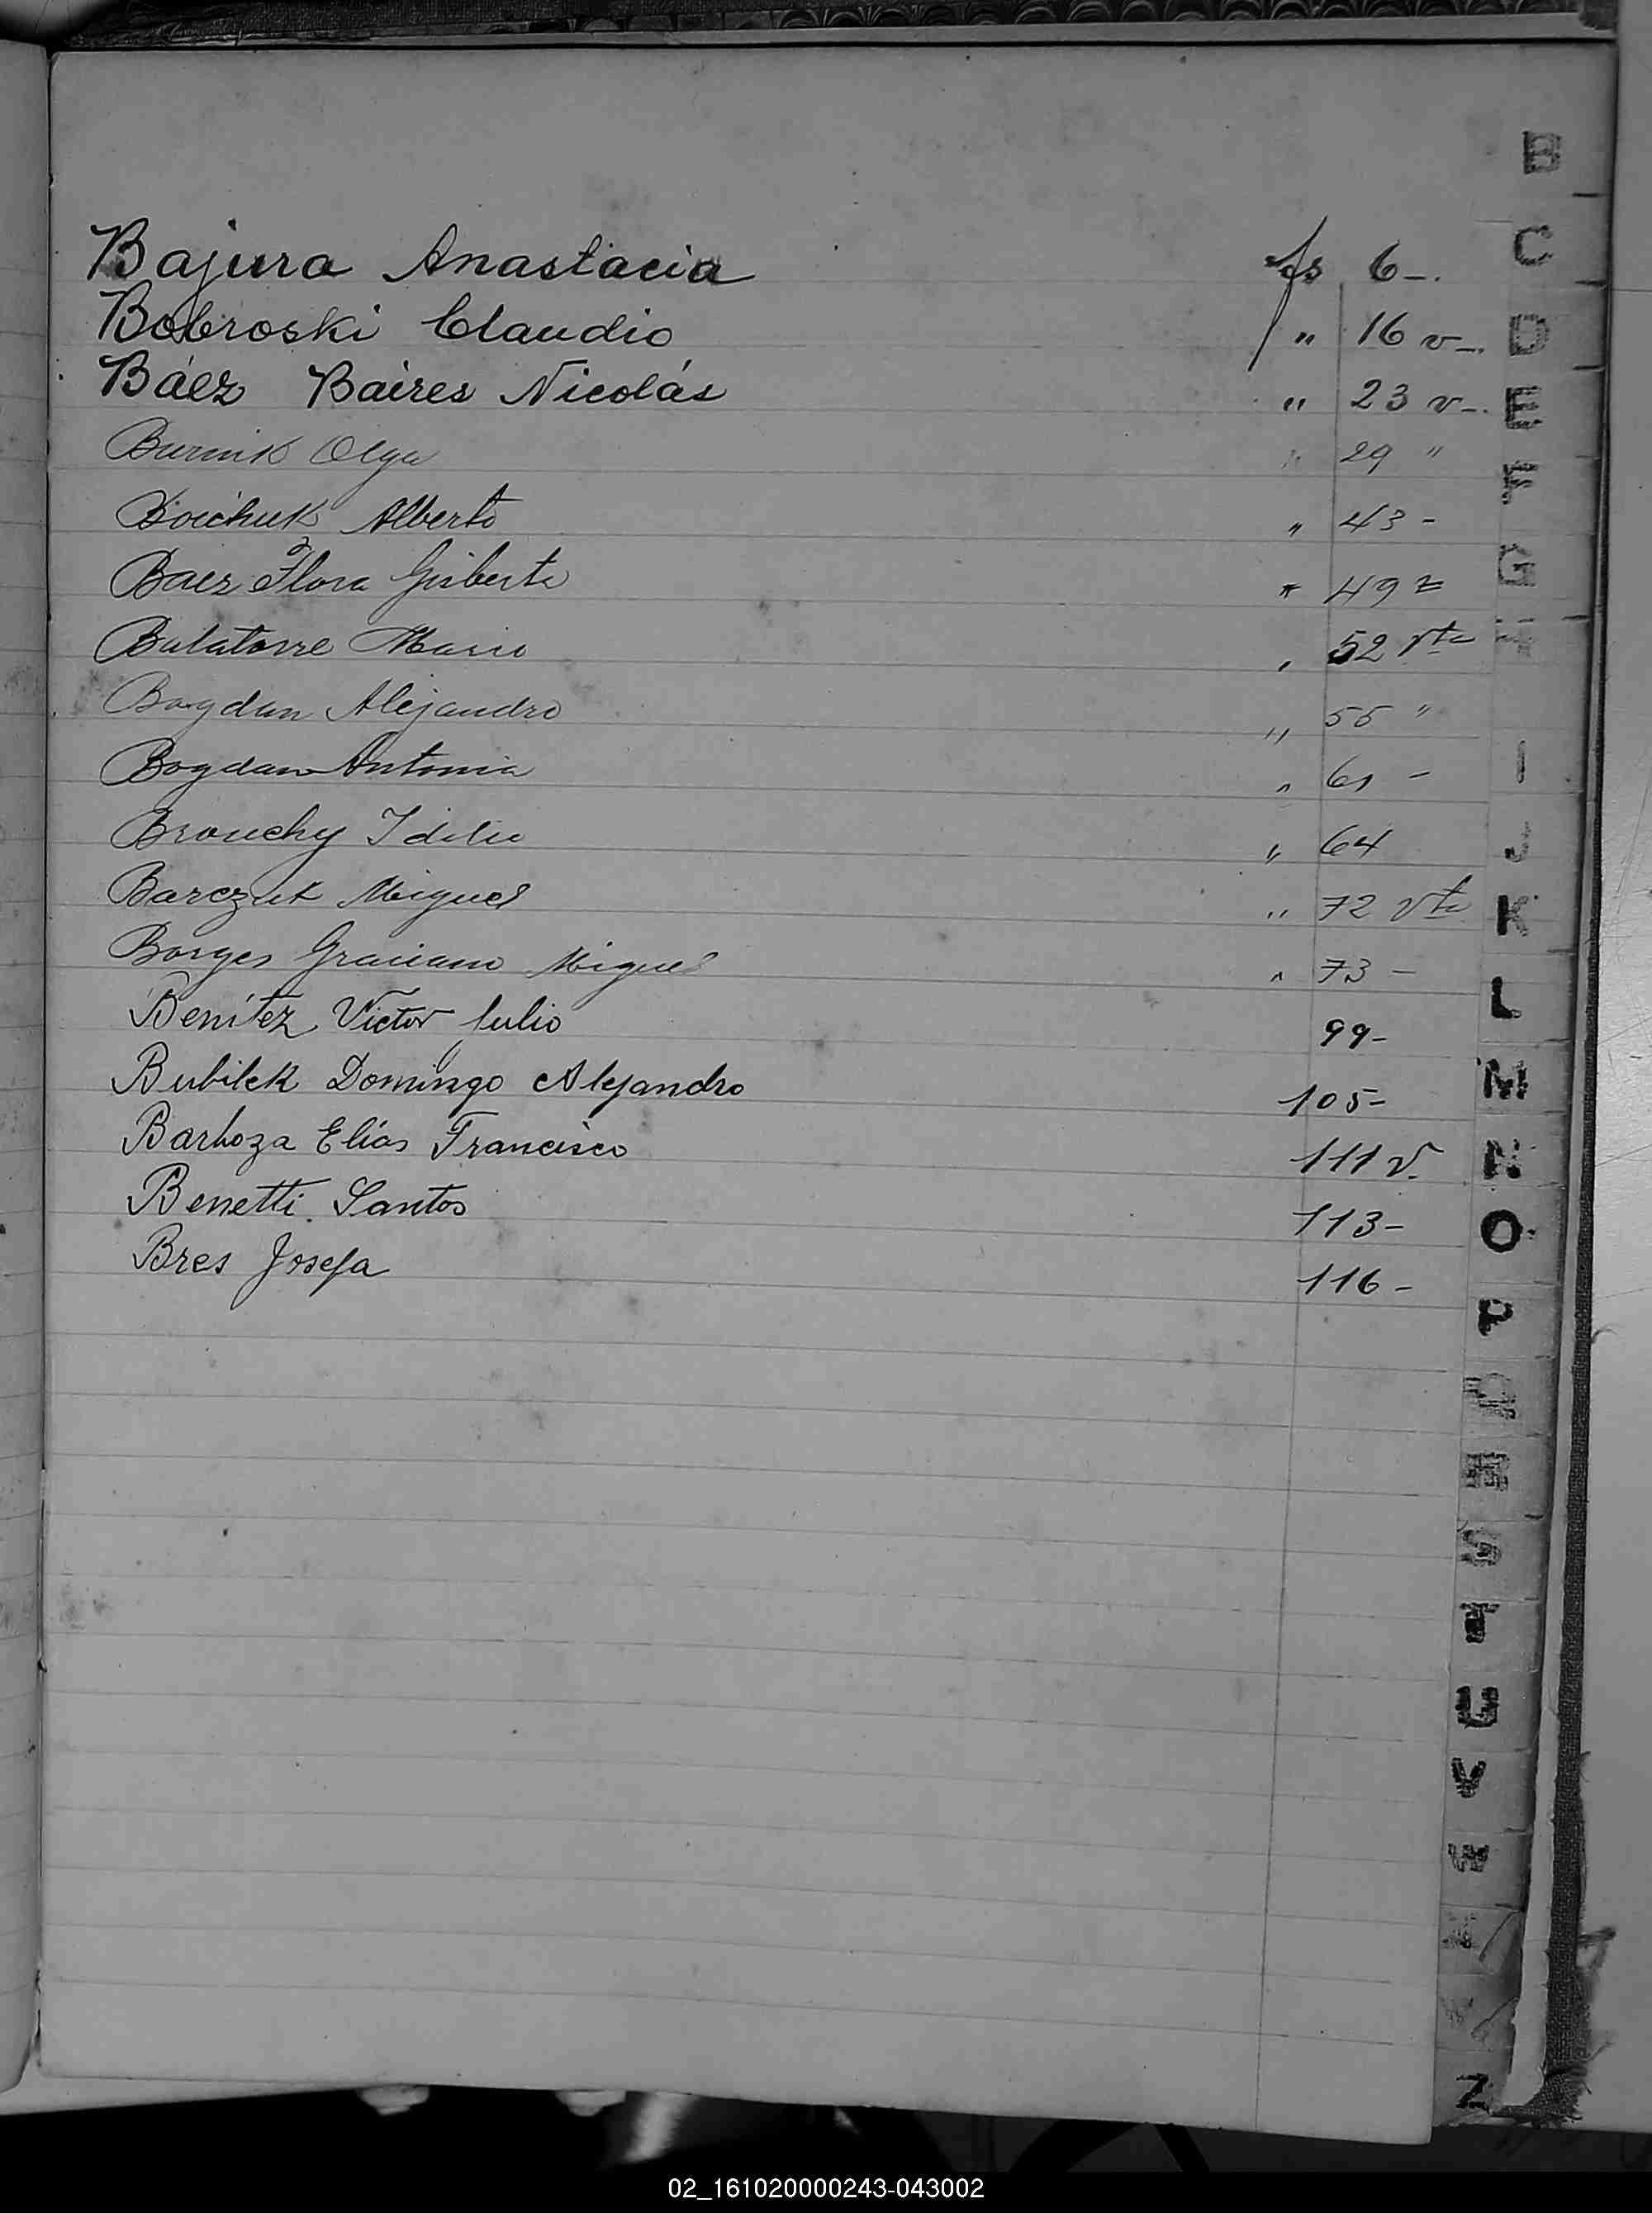 B
Bajura Anastacia fs 6-.
C
Bobroski Claudio " 16 v-.
D
Báez Baires Nicolás " 23 v-.
E
Burnik Olga " 29 "
F
Boichuk Alberto " 43 -
G
Baez Flora Gisberta " 49
Balatorre Mario " 52 vta
H
Bogdan Alejandro " 55 "
Bogdan Antonia " 61 -
I
Brouchy Idilio " 64
J
Barczuk Miguel " 72 vta
K
Borges Graciano Miguel " 73 -
L
Benítez Victor Julio 99-
Bubilek Domingo Alejandro 105-
M
Barboza Elías Francisco 111 v.
N
Benetti Santos 113-
O
Bres Josefa 116-
P
Q
R
S
T
U
V
W
Z
02_161020000243-043002